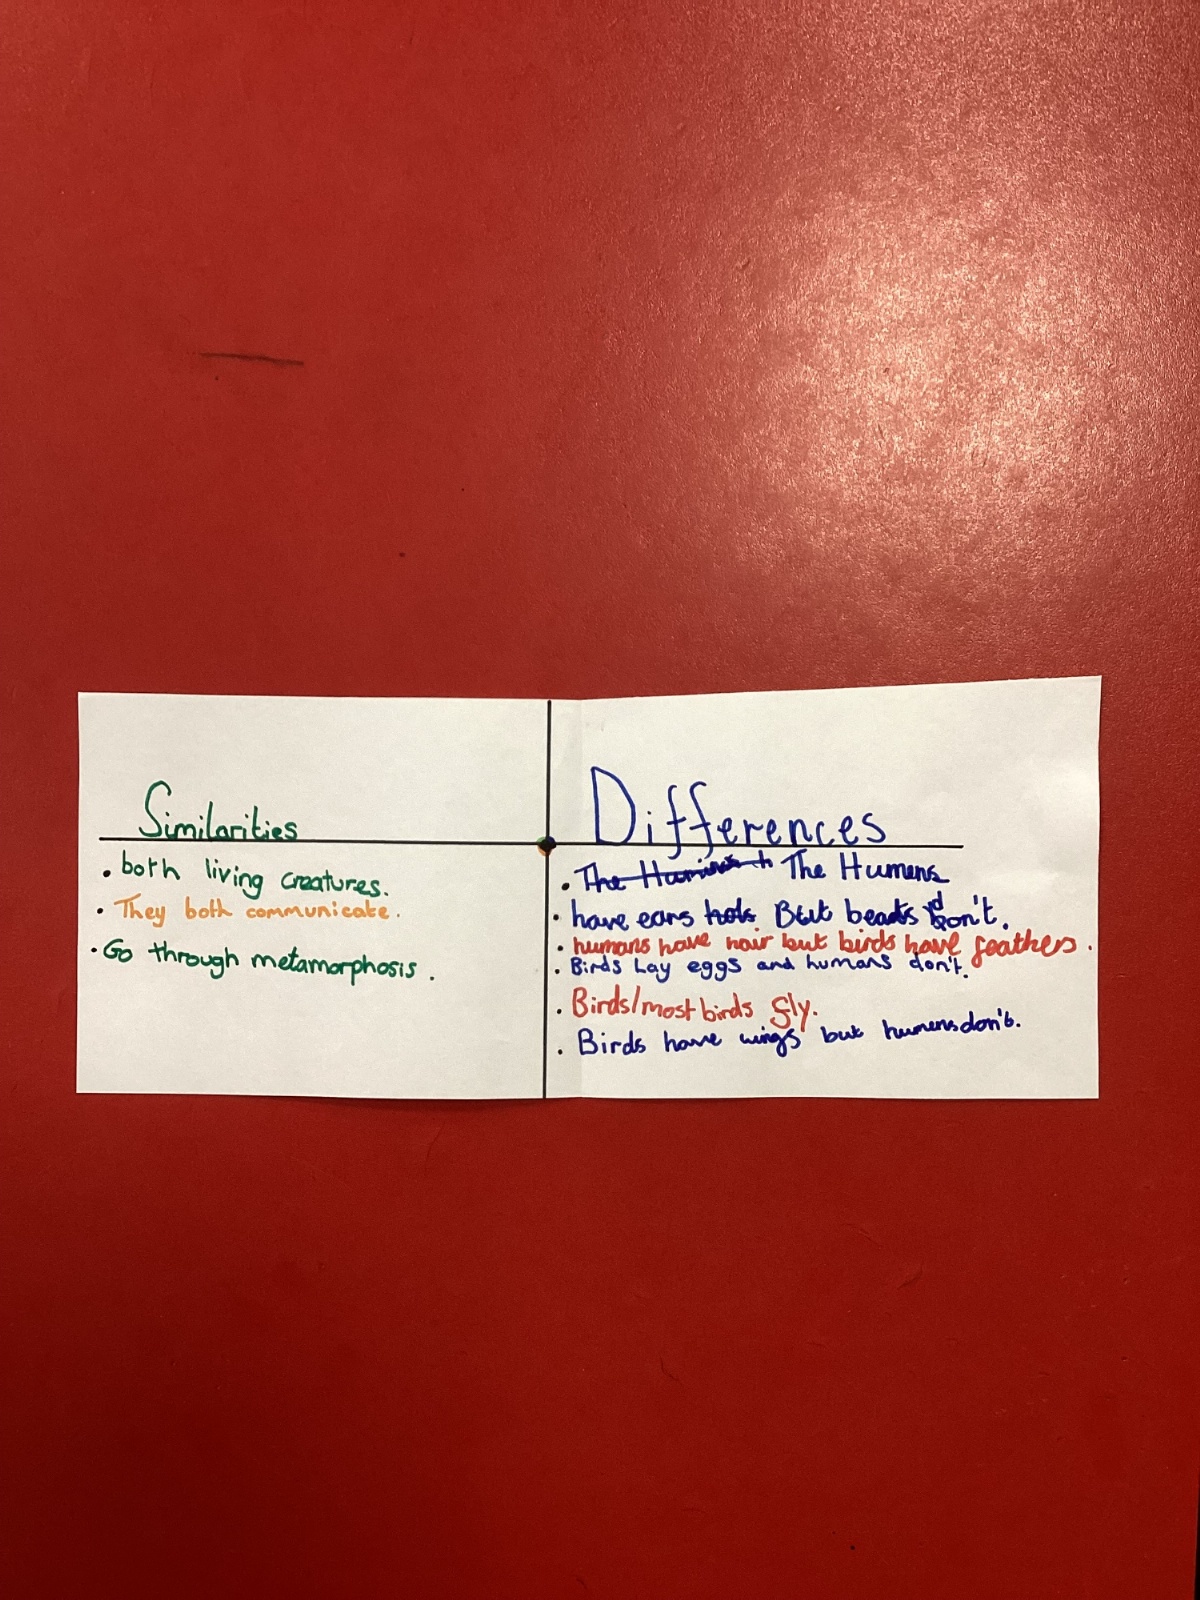 Similarities
• both living creatures.
• They both communicate.
• Go through metamorphosis.
Differences
• The Humans
• have ears But beads don't.
• humans have hair but birds have feathers.
• Birds Lay eggs and humans don't.
• Birds/most birds fly.
• Birds have wings but humans don't.